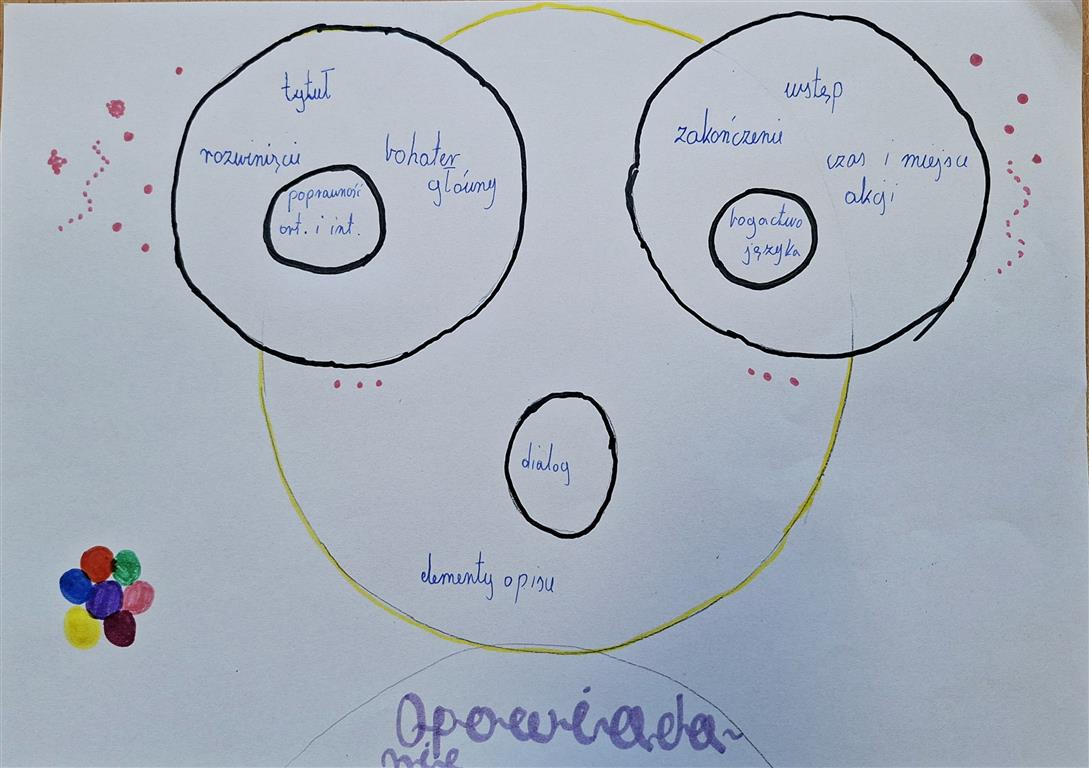 tytuł
rozwinięcie
bohater
główny
poprawność
ort. i int.
wstęp
zakończenie
czas i miejsce
akcji
bogactwo
języka
dialog
elementy opisu
Opowiada-
nie